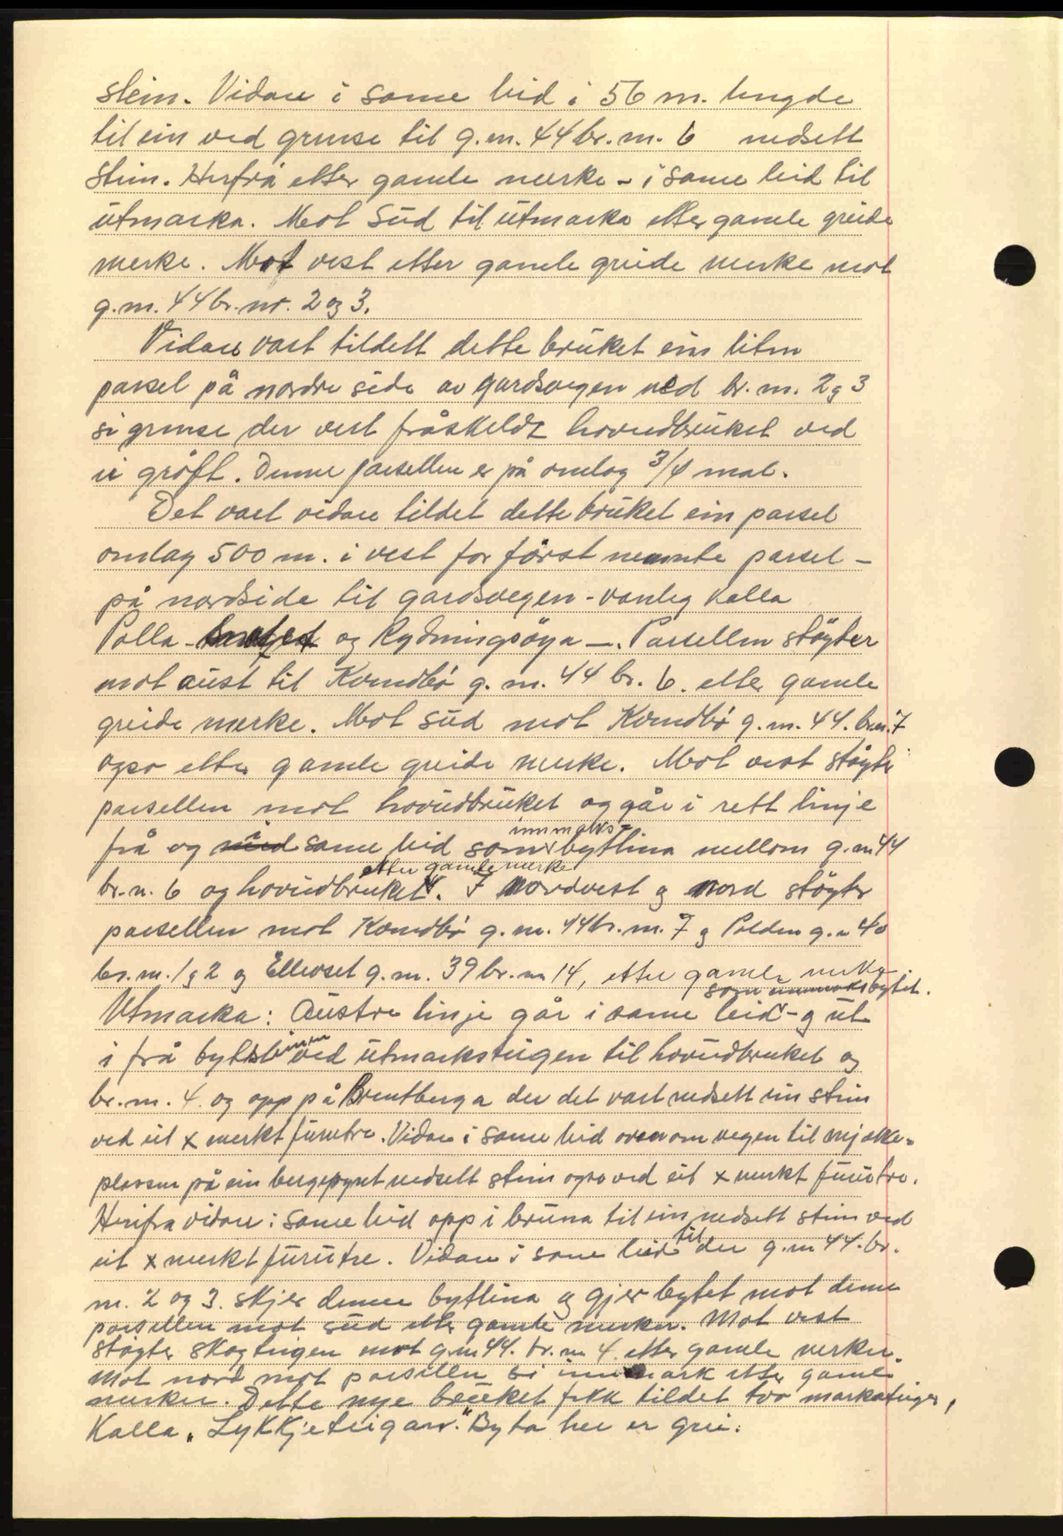 stein. Vidare i same leid i 56 m. lengde
til ein ved grense til g.nr. 44 br. nr. 6 nedsett
stein. Herfrå etter gamle merke - i same leid til
utmarka. Mot Süd til utmarka etter gamle greide
merke. Mot vest etter gamle greide merke mot
g.nr. 44 br. nr. 2 og 3.
Vidare vart tildelt dette brüket ein liten
parsel på nordre side av gardsvegen ved br. nr. 2 og 3
si grense der vert fråskeldt hovudbrüket ved
ei grøft. Denne parsellen er på omlag 3/4 mål.
Det vart vidare tildelt dette brüket ein parsel
omlag 500 m. i vest for först nemnte parsel -
på nordside til gardsvegen - vanleg kalla
Polla og Rydningsöya -. Parsellen støyter
mot aust til Kvendbø g.nr. 44 br. 6. etter gamle
greide merke. Mot süd mot Kvendbø g.nr. 44. br.nr. 7
ogso etter gamle greide merke. Mot vest støyter
parsellen mot hovudbrüket og går i rett linje
frå og i same leid som innmarks- bytlina mellom g.nr 44
br. nr. 6 og hovudbruket etter gamle merke. I nordvest og nord støyter
parsellen mot Kvendbø g.nr. 44 br. nr. 7 og Polden g.nr 40
br. nr. 1 og 2 og Ellevset g.nr. 39 br. nr 14, etter gamle merke.
Utmarka: Austre linje går i same leid som innmarksbytet. - og ut
i frå bytesteinen ved utmarksteigen til hovudbruket og
br. nr. 4. og opp på Brentberga der det vart nedsett ein stein
ved eit x merkt furutre. Vidare i same leid ovanom vegen til mjølke-
plassen på ein bergpynt nedsett stein ogso ved eit x merkt furutre.
Herifra vidare i same leid opp i bruna til ein nedsett stein ved
eit x merkt furutre. Vidare i same leid til der g.nr 44. br.
nr. 2 og 3. skjer denne bytlina og gjer bytet mot denne
parsellen mot süd etter gamle merker. Mot vest
støyter skogteigen mot g.nr 44. br. nr 4. etter gamle merker.
Mot nord mot parsellen si innmark etter gamle
merker. Dette nye brüket fekk tildelt tvo markateiger,
Kalla „Lykkjeteigar." Byta her er grei.